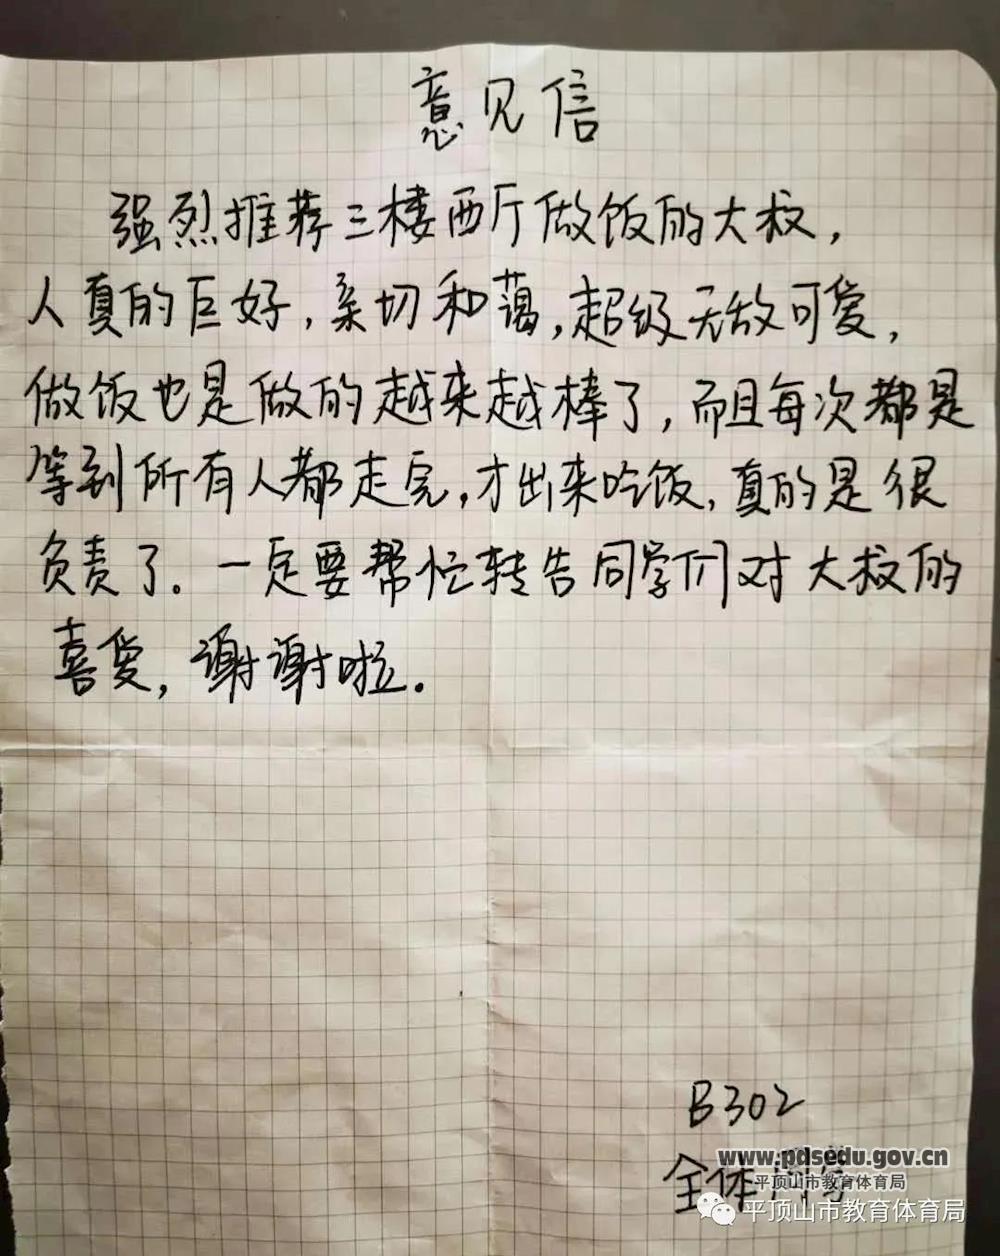 意见信
强烈推荐三楼西厅做饭的大叔，
人真的巨好，亲切和蔼，超级无敌可爱，
做饭也是做的越来越棒了，而且每次都是
等到所有人都走完，才出来吃饭，真的是很
负责了。一定要帮忙转告同学们对大叔的
喜爱，谢谢啦.
B302
www.pdsedu.gov.cn
全体同学
平顶山市教育体育局
平顶山市教育体育局